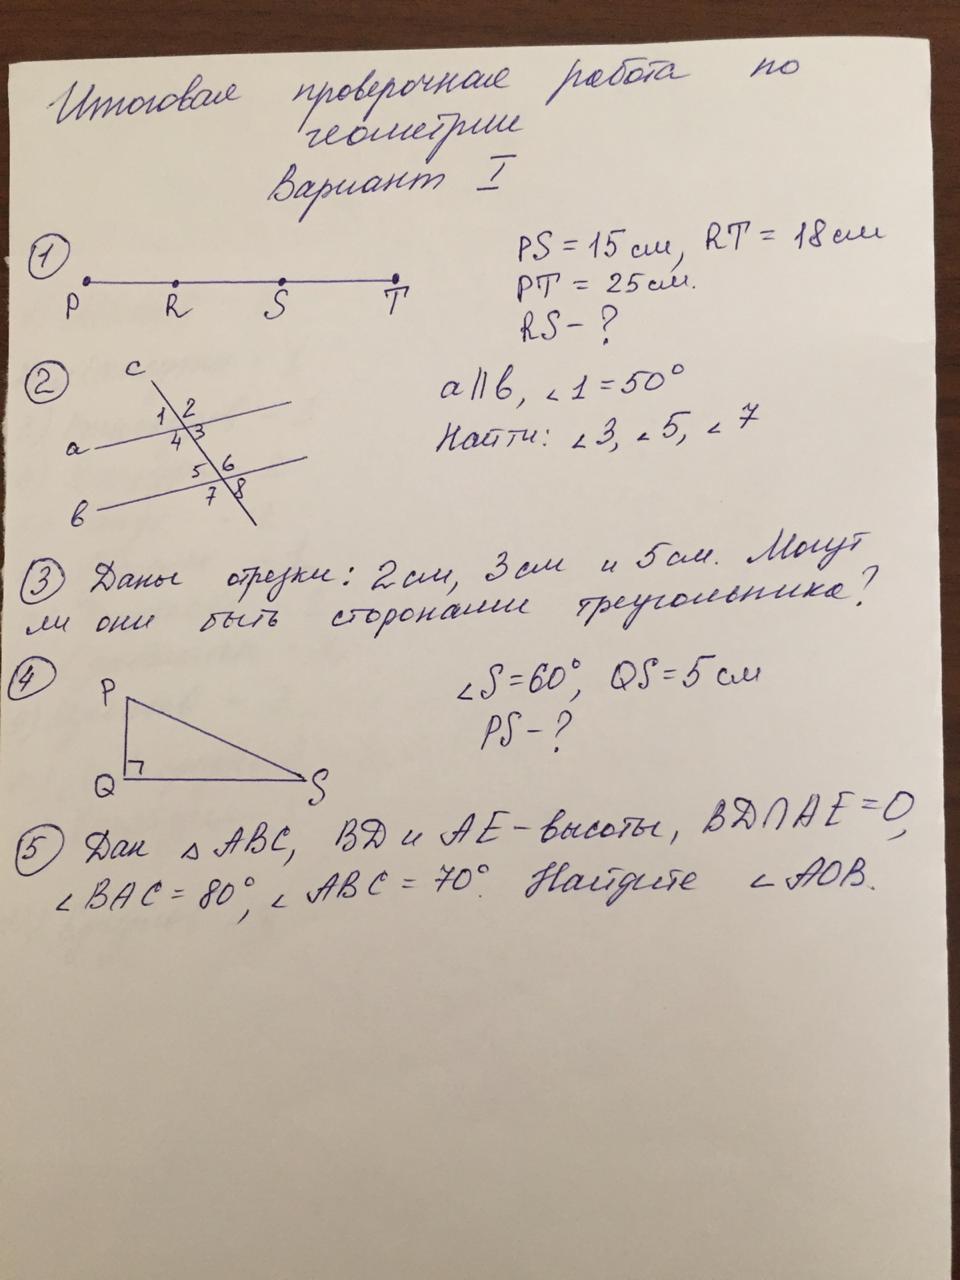 Итоговая проверочная работа по
геометрии
Вариант I
① PS = 15 см, RT = 18 см
P R S T PT = 25 см.
RS - ?
② c
a || b, ∠1 = 50°
1 2
a 4 3
Найти: ∠3, ∠5, ∠7
5 6
b 7 8
③ Даны отрезки: 2 см, 3 см и 5 см. Могут
ли они быть сторонами треугольника?
④ P ∠S = 60°, QS = 5 см
PS - ?
Q S
⑤ Дан △ ABC, BD и AE - высоты, BD ∩ AE = O,
∠BAC = 80°, ∠ABC = 70°. Найдите ∠AOB.